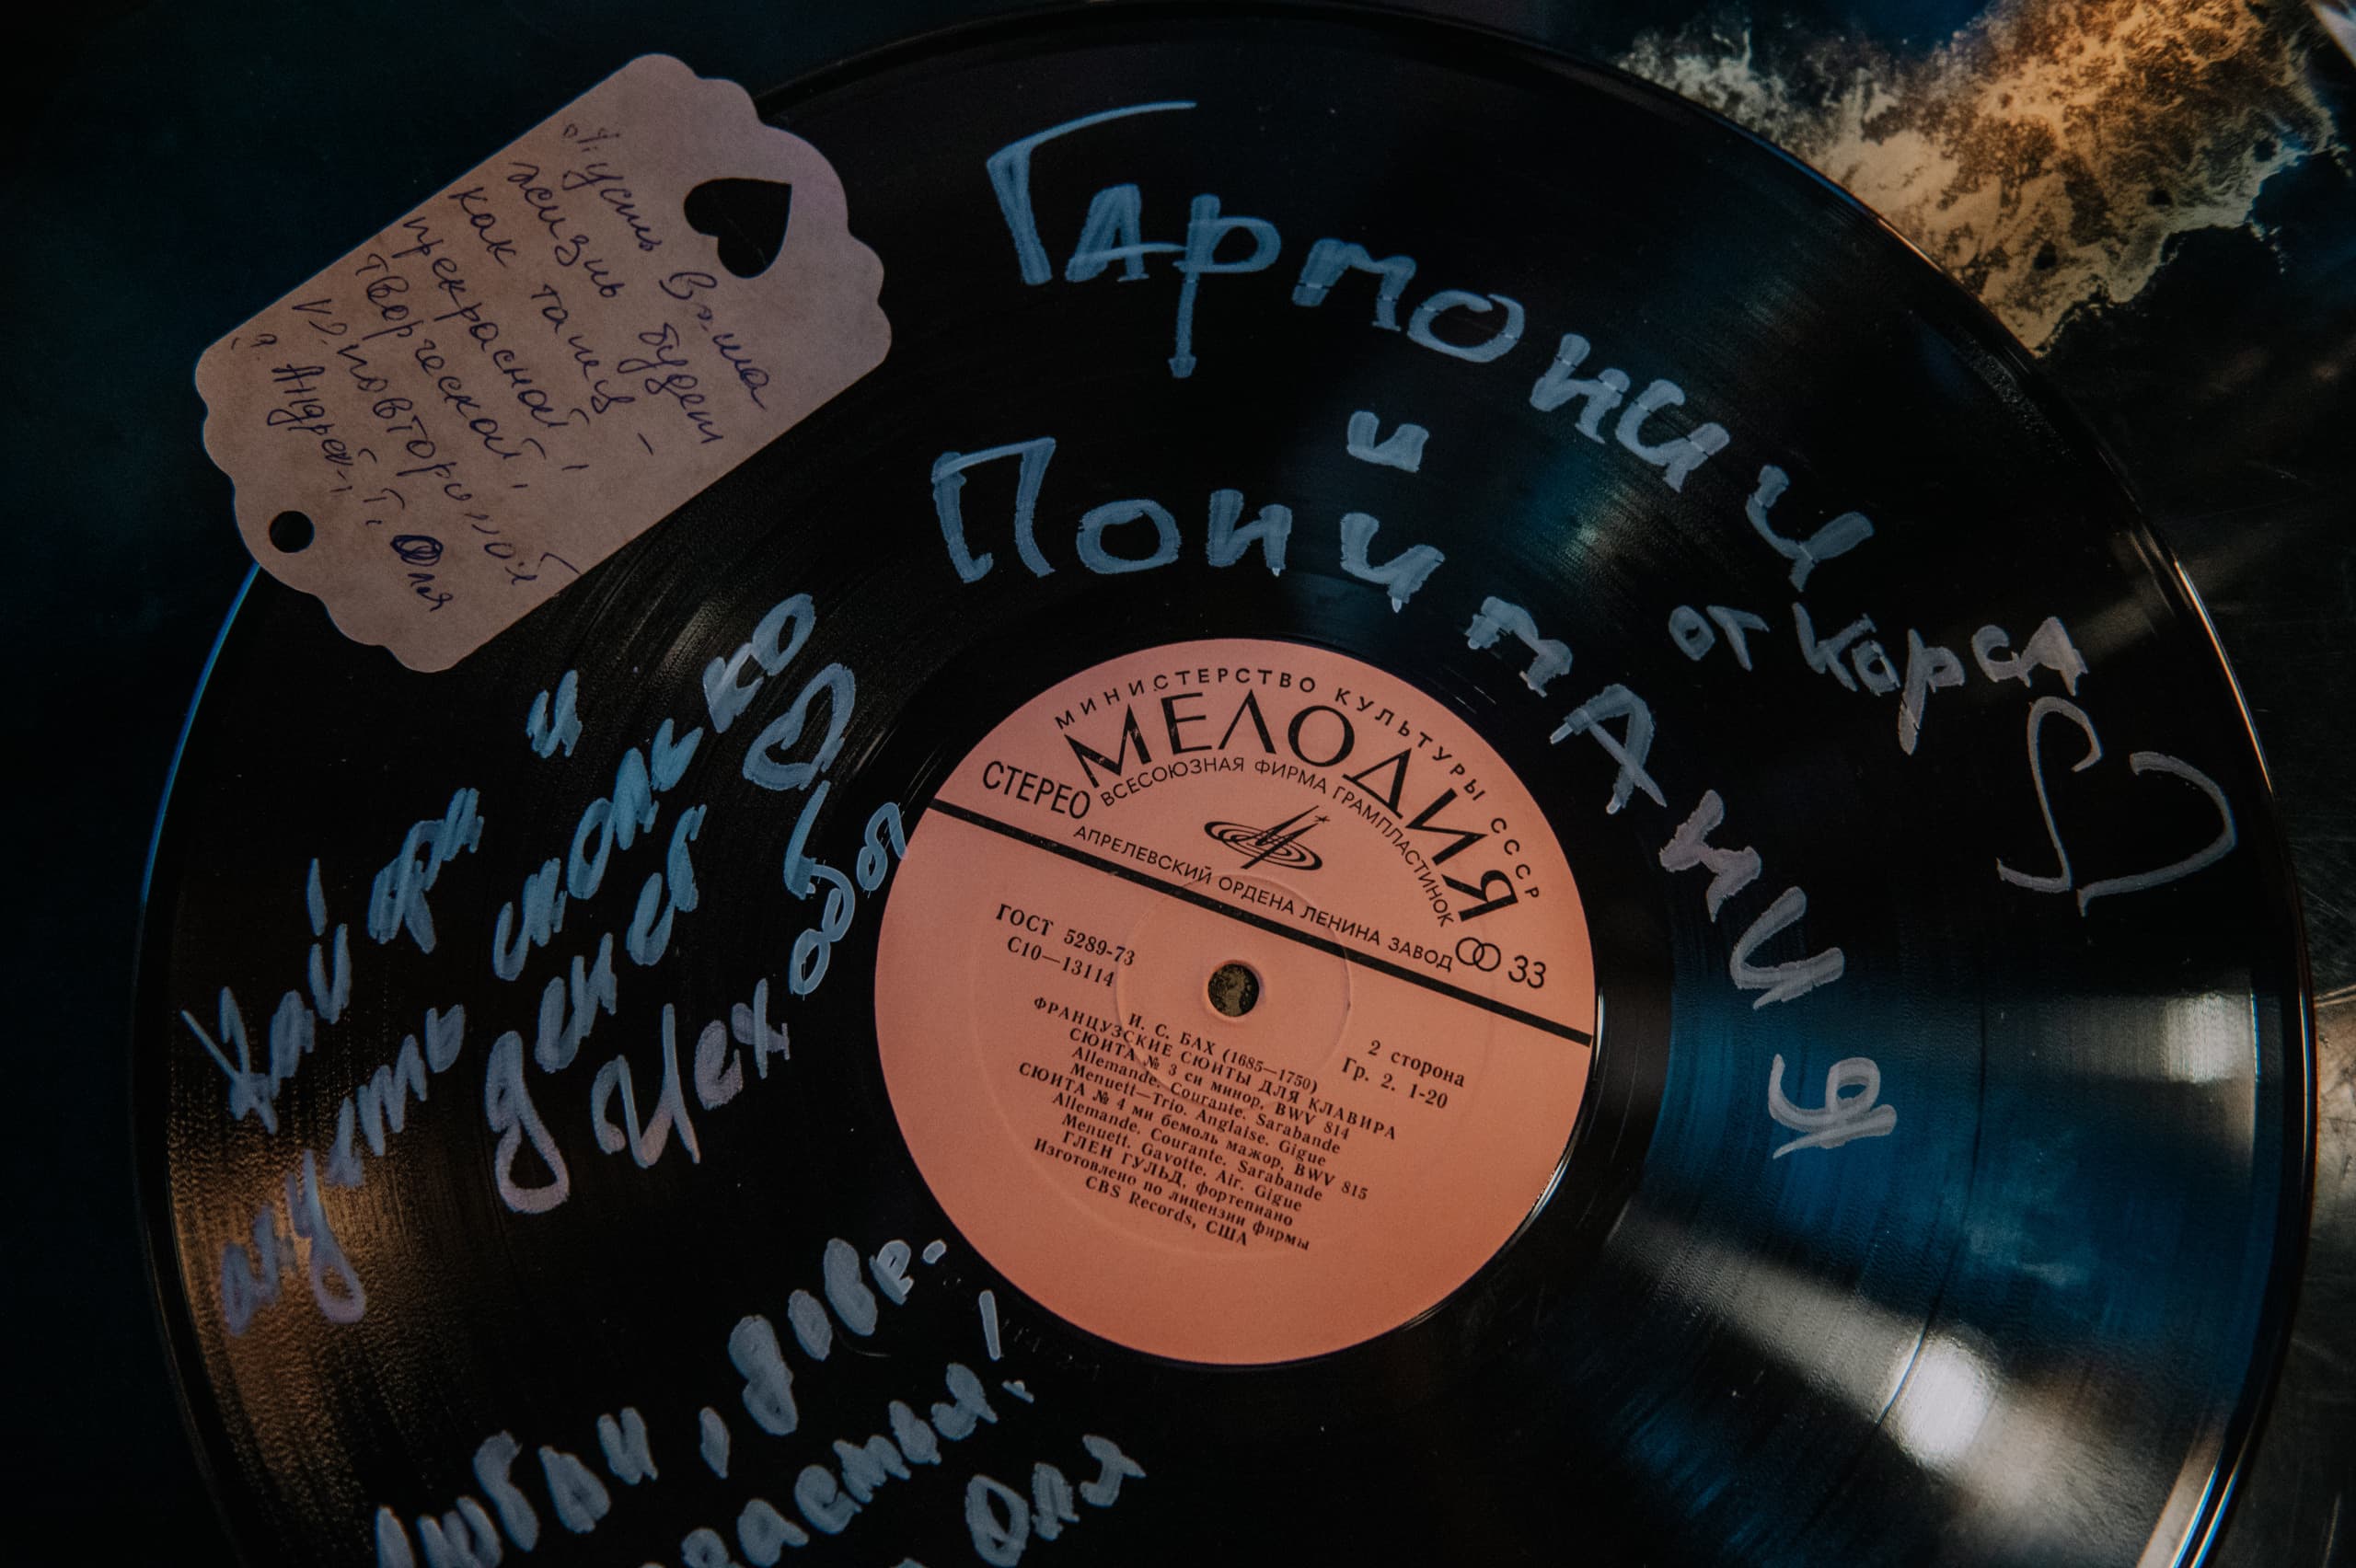 "Пусть Ваша
жизнь будет
как танец -
прекрасной!
творческой,
неповторимой
Андрей, Т. Оля
Гармонии
и
Понимания
от Карса
Кайфа и
столько
денег
МИНИСТЕРСТВО КУЛЬТУРЫ СССР
МЕЛОДИЯ
ВСЕСОЮЗНАЯ ФИРМА ГРАМПЛАСТИНОК
СТЕРЕО
АПРЕЛЕВСКИЙ ОРДЕНА ЛЕНИНА ЗАВОД
33
ГОСТ 5289-73
С10—13114
2 сторона
Гр. 2. 1-20
И. С. БАХ (1685—1750)
ФРАНЦУЗСКИЕ СЮИТЫ ДЛЯ КЛАВИРА
СЮИТА № 3 си минор, BWV 814
Allemande. Courante. Sarabande
Menuett—Trio. Anglaise. Gigue
СЮИТА № 4 ми бемоль мажор, BWV 815
Allemande. Courante. Sarabande
Menuett. Gavotte. Air. Gigue
ГЛЕН ГУЛЬД, фортепиано
Изготовлено по лицензии фирмы
CBS Records, США
Любви, добр.
счастья!
Оля